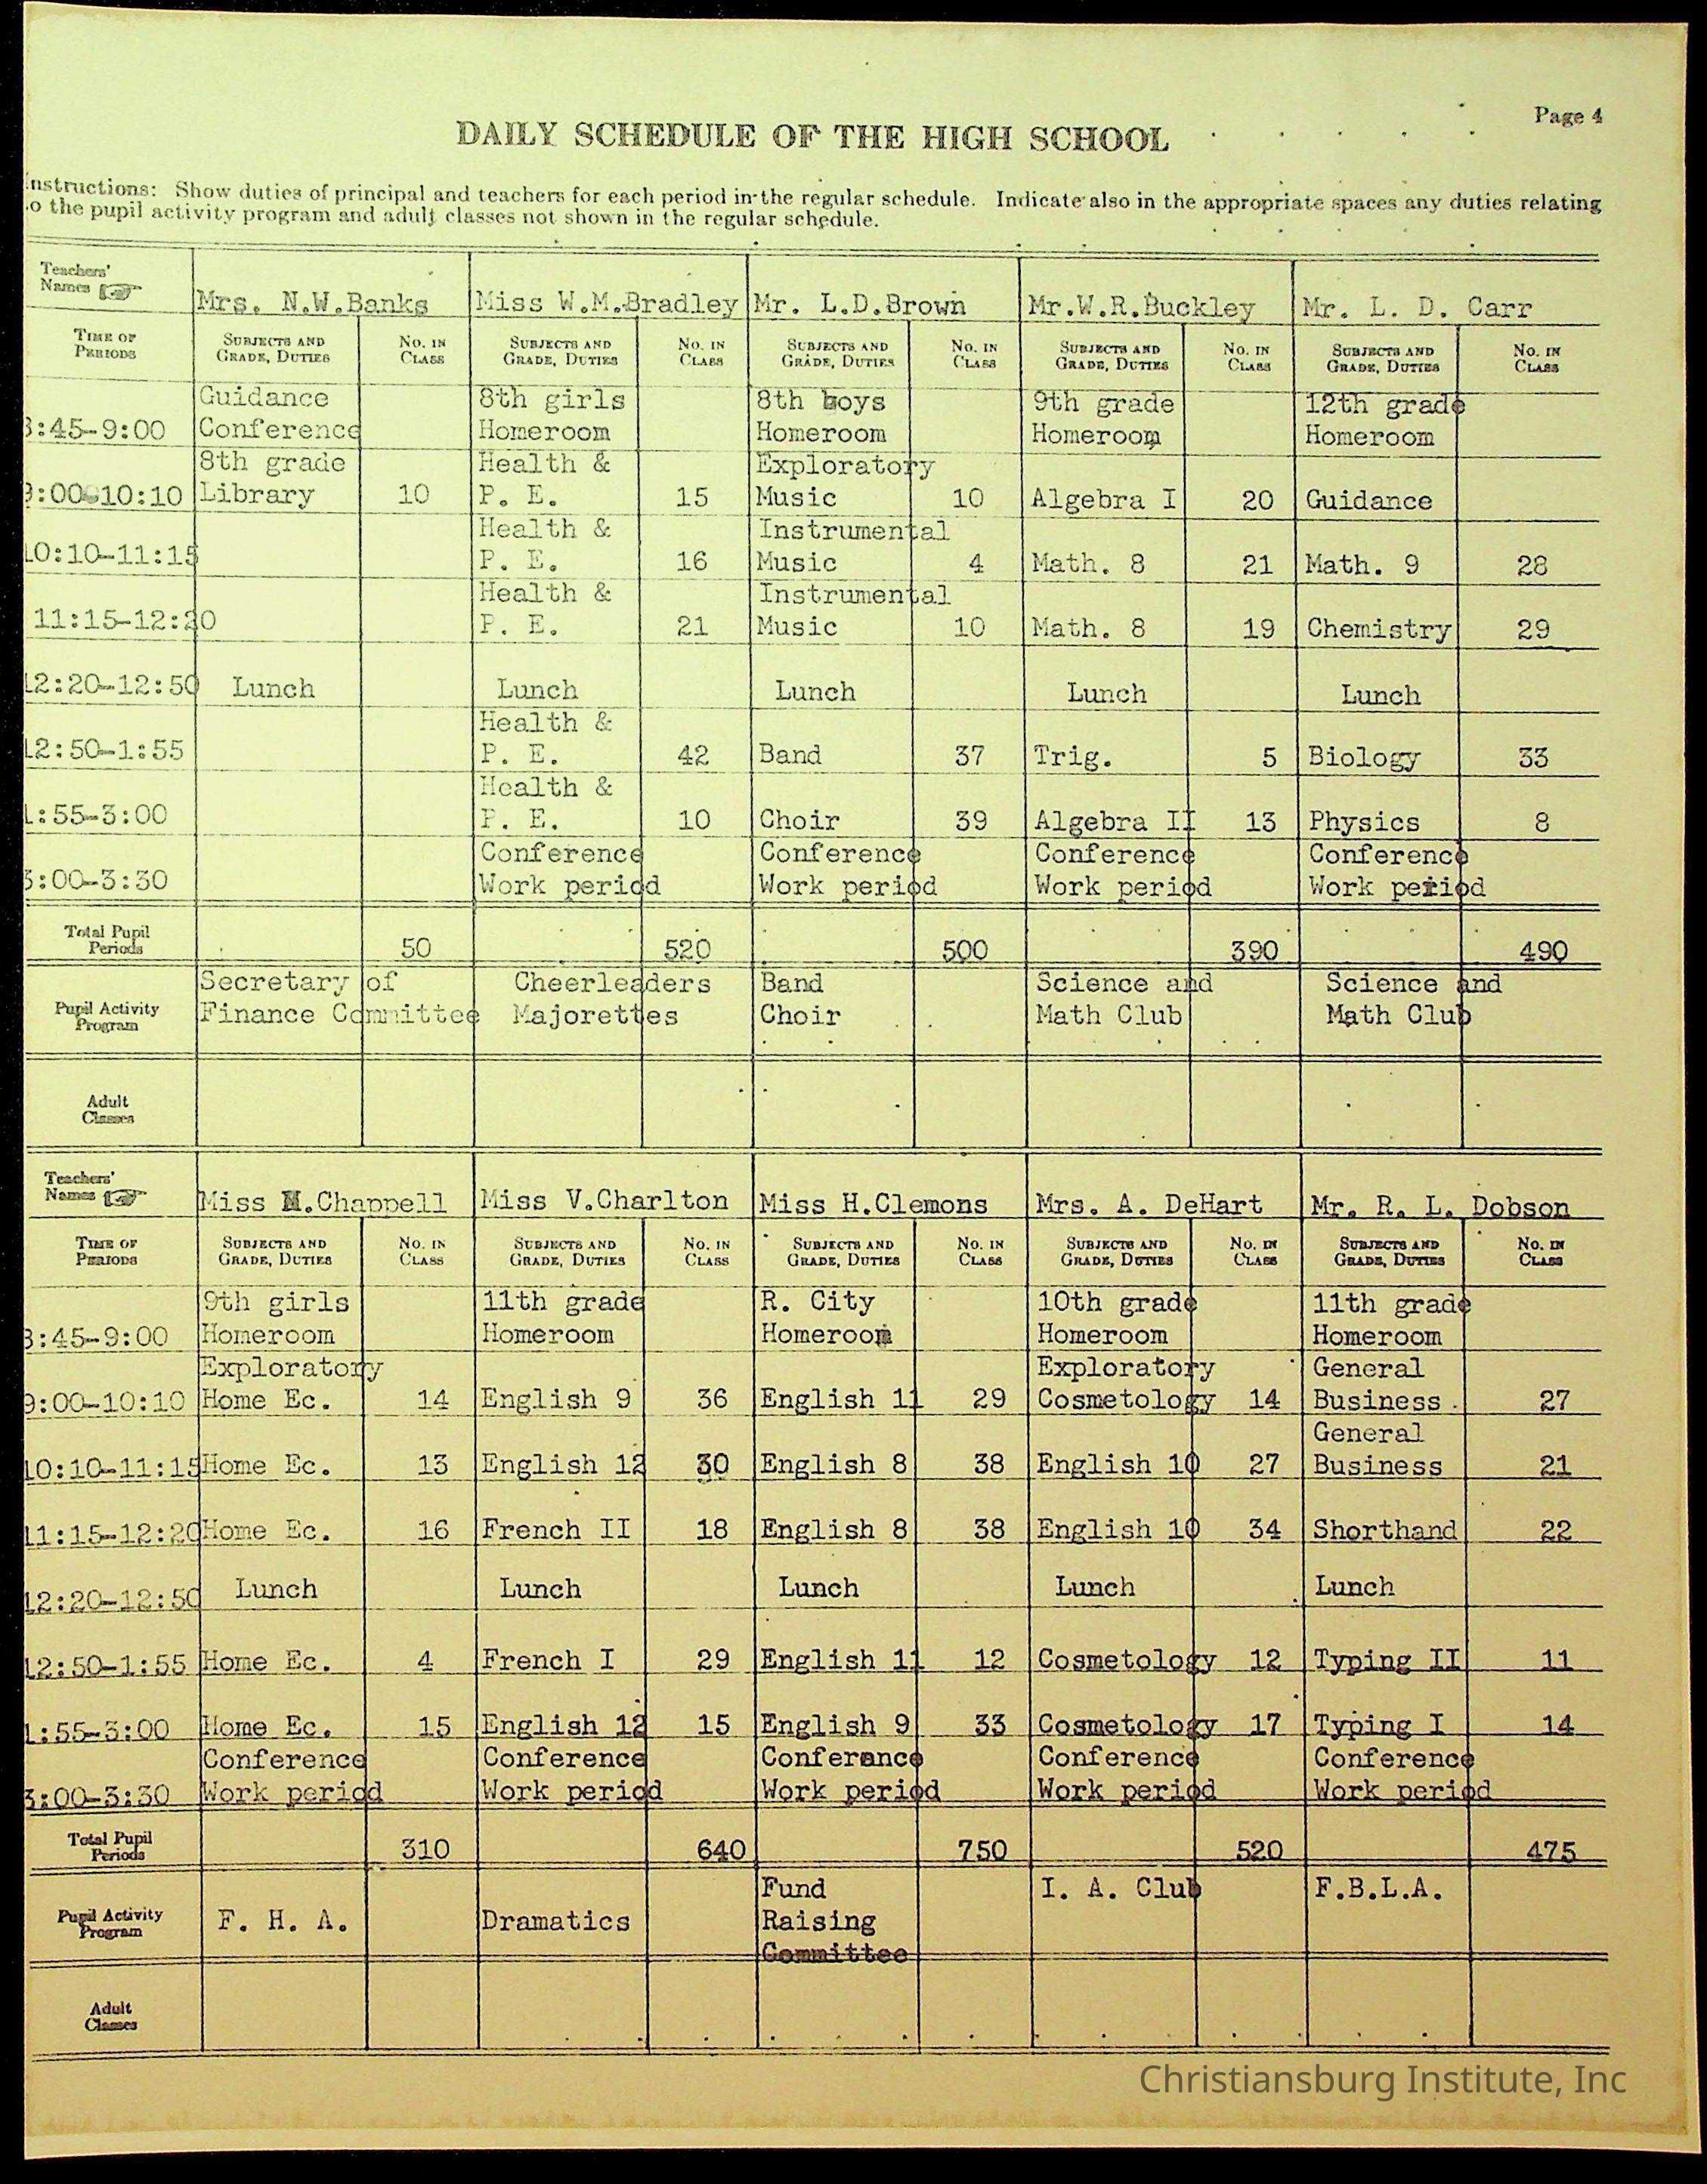 Page 4
DAILY SCHEDULE OF THE HIGH SCHOOL
nstructions: Show duties of principal and teachers for each period in the regular schedule. Indicate also in the appropriate spaces any duties relating
o the pupil activity program and adult classes not shown in the regular schedule.
Teachers'
Names Mrs. N.W.Banks Miss W.M.Bradley Mr. L.D.Brown Mr.W.R.Buckley Mr. L. D. Carr
TIME OF SUBJECTS AND NO. IN SUBJECTS AND NO. IN SUBJECTS AND NO. IN SUBJECTS AND NO. IN SUBJECTS AND NO. IN
PERIODS GRADE, DUTIES CLASS GRADE, DUTIES CLASS GRADE, DUTIES CLASS GRADE, DUTIES CLASS GRADE, DUTIES CLASS
Guidance 8th girls 8th boys 9th grade 12th grade
8:45-9:00 Conference Homeroom Homeroom Homeroom Homeroom
8th grade Health & Exploratory
9:00-10:10 Library 10 P. E. 15 Music 10 Algebra I 20 Guidance
Health & Instrumental
10:10-11:15 P. E. 16 Music 4 Math. 8 21 Math. 9 28
Health & Instrumental
11:15-12:20 P. E. 21 Music 10 Math. 8 19 Chemistry 29
12:20-12:50 Lunch Lunch Lunch Lunch Lunch
Health &
12:50-1:55 P. E. 42 Band 37 Trig. 5 Biology 33
Health &
1:55-3:00 P. E. 10 Choir 39 Algebra II 13 Physics 8
Conference Conference Conference Conference
3:00-3:30 Work period Work period Work period Work period
Total Pupil
Periods 50 520 500 390 490
Secretary of Cheerleaders Band Science and Science and
Pupil Activity
Program Finance Committee Majorettes Choir Math Club Math Club
Adult
Classes
Teachers'
Names Miss M.Chappell Miss V.Charlton Miss H.Clemons Mrs. A. DeHart Mr. R. L. Dobson
TIME OF SUBJECTS AND NO. IN SUBJECTS AND NO. IN SUBJECTS AND NO. IN SUBJECTS AND NO. IN SUBJECTS AND NO. IN
PERIODS GRADE, DUTIES CLASS GRADE, DUTIES CLASS GRADE, DUTIES CLASS GRADE, DUTIES CLASS GRADE, DUTIES CLASS
9th girls 11th grade R. City 10th grade 11th grade
8:45-9:00 Homeroom Homeroom Homeroom Homeroom Homeroom
Exploratory Exploratory General
9:00-10:10 Home Ec. 14 English 9 36 English 11 29 Cosmetology 14 Business 27
General
10:10-11:15 Home Ec. 13 English 12 30 English 8 38 English 10 27 Business 21
11:15-12:20 Home Ec. 16 French II 18 English 8 38 English 10 34 Shorthand 22
12:20-12:50 Lunch Lunch Lunch Lunch Lunch
12:50-1:55 Home Ec. 4 French I 29 English 11 12 Cosmetology 12 Typing II 11
1:55-3:00 Home Ec. 15 English 12 15 English 9 33 Cosmetology 17 Typing I 14
Conference Conference Conference Conference Conference
3:00-3:30 Work period Work period Work period Work period Work period
Total Pupil
Periods 310 640 750 520 475
Fund I. A. Club F.B.L.A.
Pupil Activity
Program F. H. A. Dramatics Raising
Committee
Adult
Classes
Christiansburg Institute, Inc